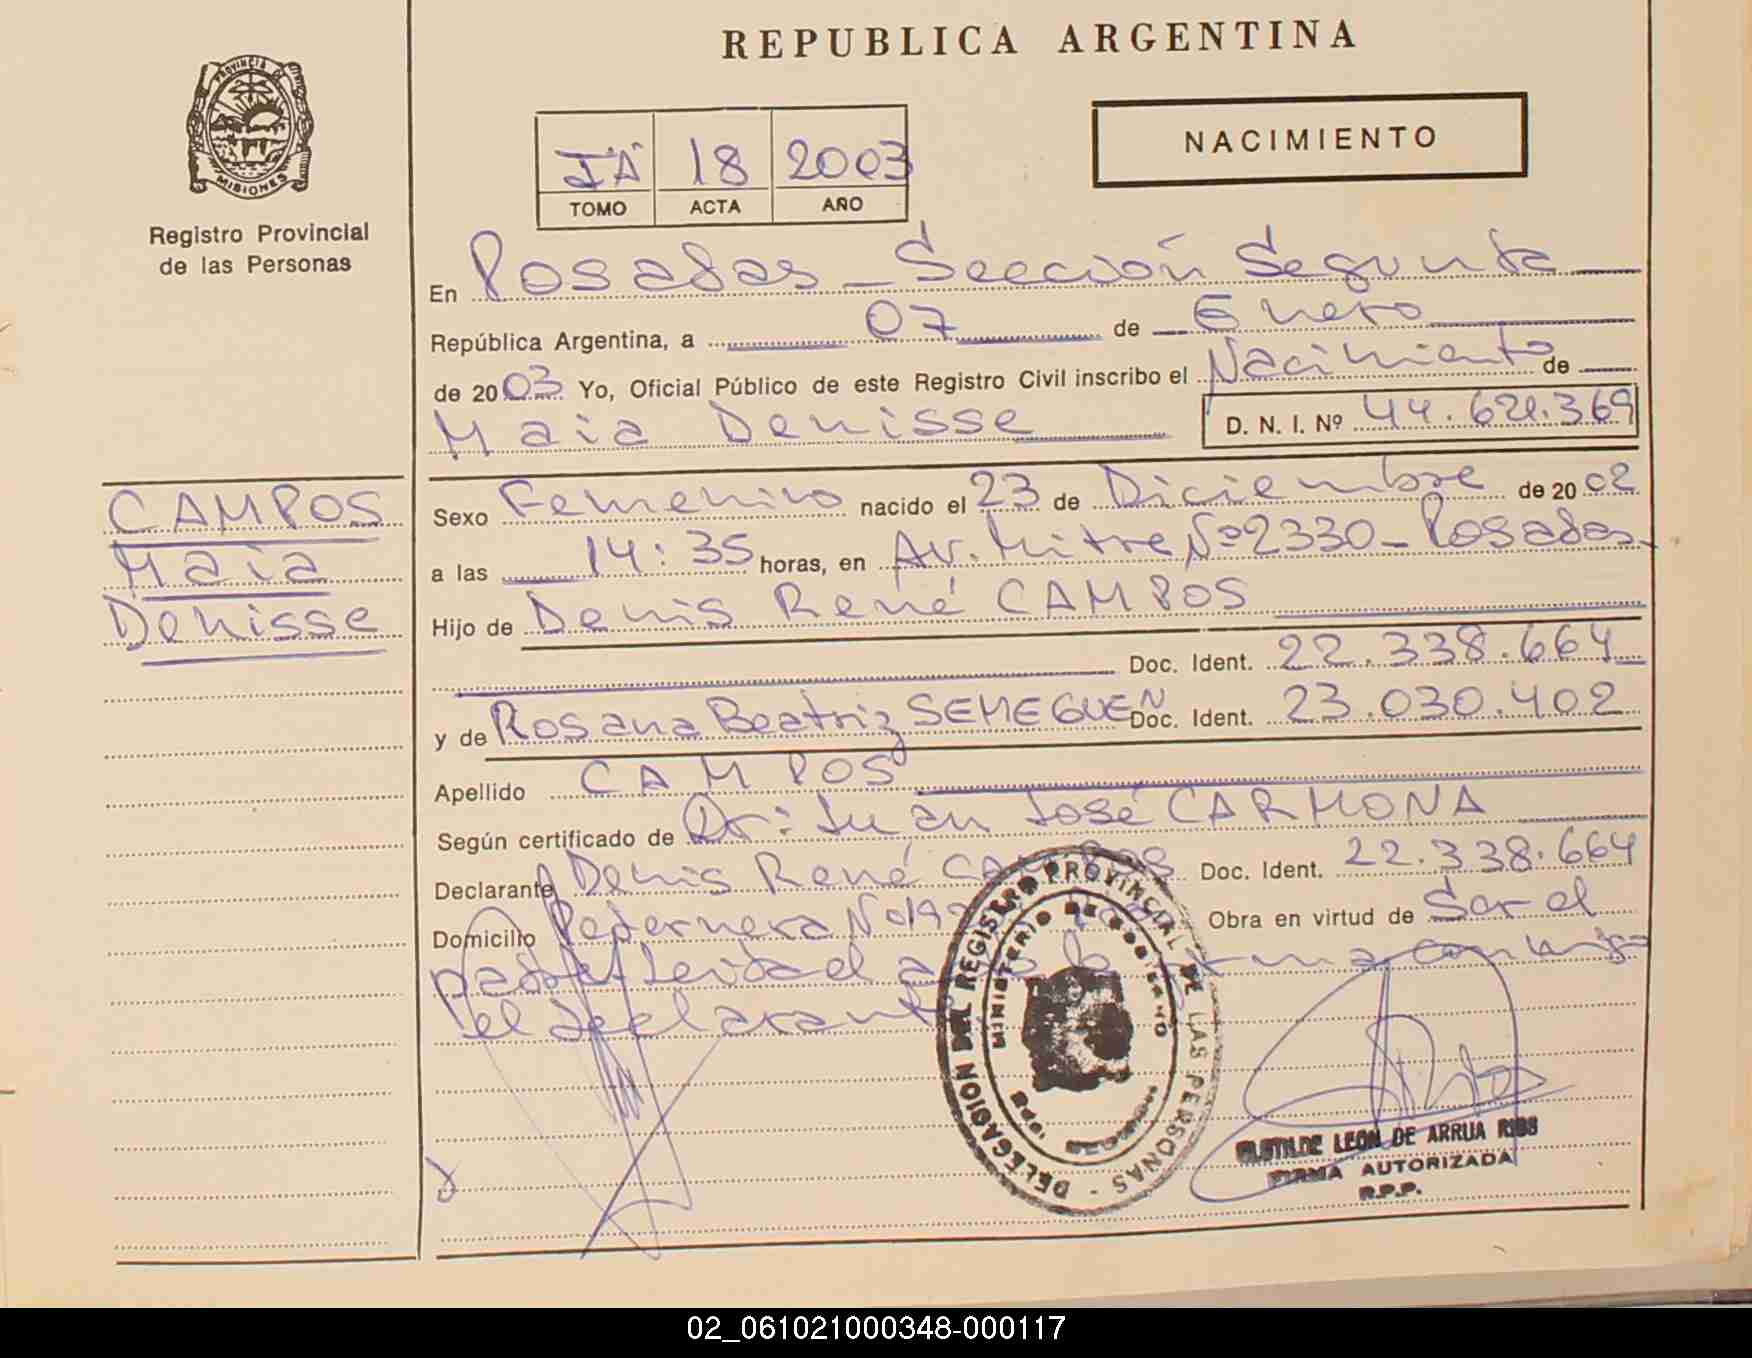 REPUBLICA ARGENTINA
PROVINCIA DE MISIONES
Registro Provincial
de las Personas
NACIMIENTO
18 2003
TOMO ACTA AÑO
En Posadas - Sección Segunda
República Argentina, a 07 de Enero
de 2003 Yo, Oficial Público de este Registro Civil inscribo el Nacimiento de
Maia Denisse D. N. I. Nº 44.621.369
CAMPOS
Maia
Denisse
Sexo Femenino nacido el 23 de Diciembre de 2002
a las 14:35 horas, en Av. Mitre Nº 2330 - Posadas
Hijo de Denis René CAMPOS
Doc. Ident. 22.338.664
y de Rosana Beatriz SEMEGUEN Doc. Ident. 23.030.402
Apellido CAMPOS
Según certificado de Dr: Juan José CARMONA
Declarante Denis René CAMPOS Doc. Ident. 22.338.664
Domicilio Pedernera Nº Obra en virtud de Ser el
padre Leida el acta la firma conmigo
el declarante
DELEGACION DEL REGISTRO PROVINCIAL DE LAS PERSONAS
MINISTERIO DE GOBIERNO
CLOTILDE LEON DE ARRUA RIOS
FIRMA AUTORIZADA
R.P.P.
02_061021000348-000117